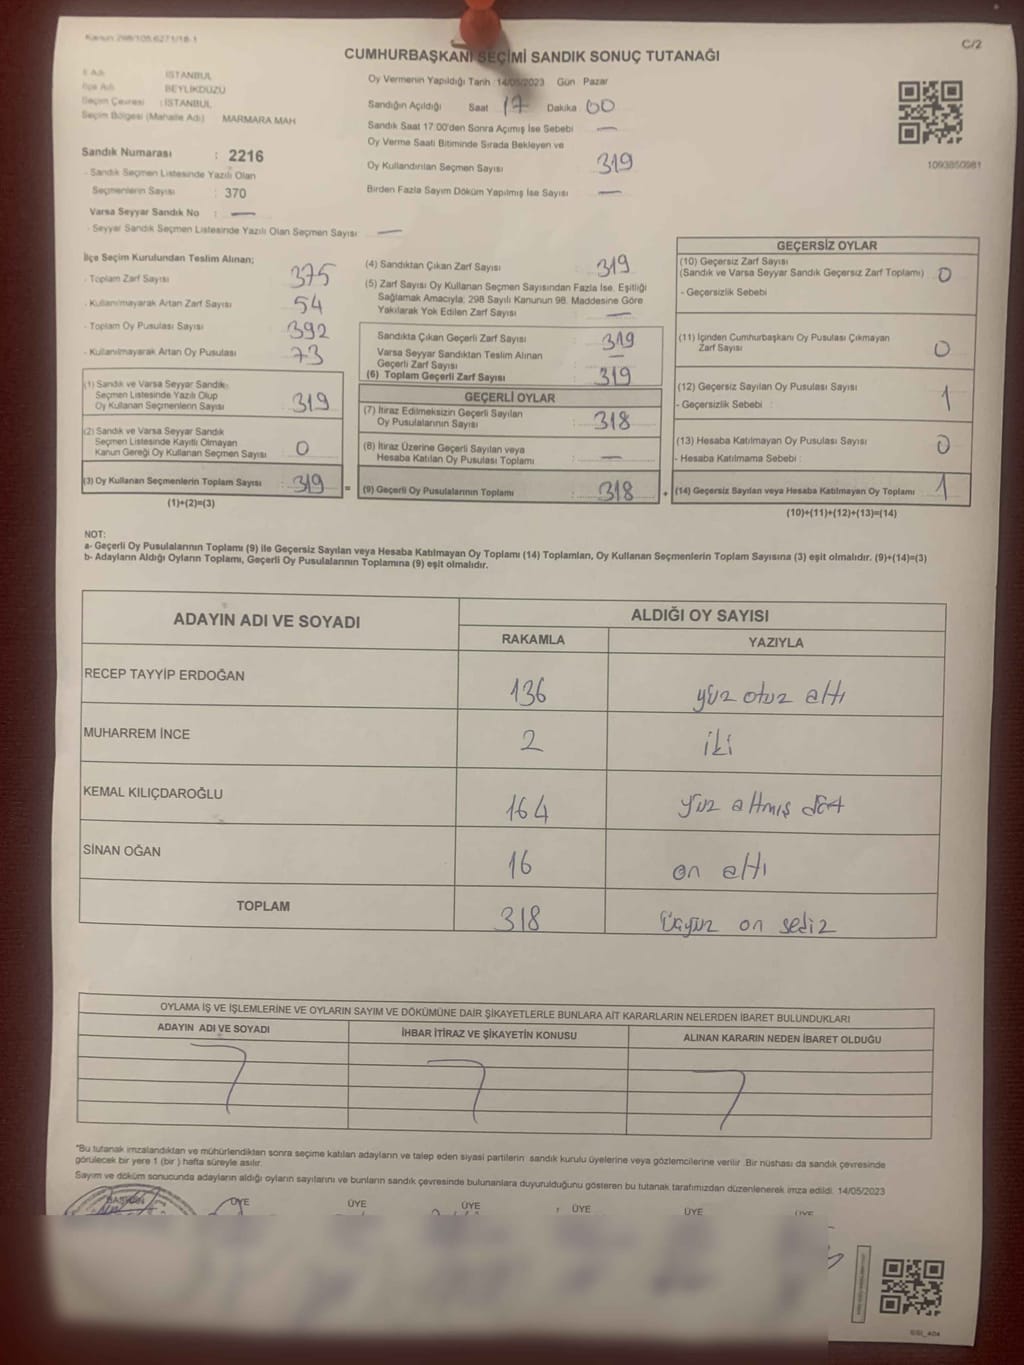 Kanun 298/105,6271/18-1
C/2
CUMHURBAŞKANI SEÇİMİ SANDIK SONUÇ TUTANAĞI
İl Adı İSTANBUL
İlçe Adı BEYLİKDÜZÜ
Seçim Çevresi : İSTANBUL
Seçim Bölgesi (Mahalle Adı) MARMARA MAH
Sandık Numarası : 2216
- Sandık Seçmen Listesinde Yazılı Olan
Seçmenlerin Sayısı : 370
Varsa Seyyar Sandık No : —
- Seyyar Sandık Seçmen Listesinde Yazılı Olan Seçmen Sayısı : —
Oy Vermenin Yapıldığı Tarih : 14/05/2023 Gün Pazar
Sandığın Açıldığı Saat 17 Dakika 00
Sandık Saat 17:00'den Sonra Açımış İse Sebebi —
Oy Verme Saati Bitiminde Sırada Bekleyen ve
Oy Kullandırılan Seçmen Sayısı 319
Birden Fazla Sayım Döküm Yapılmış İse Sayısı —
1093850981
İlçe Seçim Kurulundan Teslim Alınan;
- Toplam Zarf Sayısı : 375
- Kullanılmayarak Artan Zarf Sayısı : 54
- Toplam Oy Pusulası Sayısı : 392
- Kullanılmayarak Artan Oy Pusulası : 73
(1) Sandık ve Varsa Seyyar Sandık
Seçmen Listesinde Yazılı Olup
Oy Kullanan Seçmenlerin Sayısı : 319
(2) Sandık ve Varsa Seyyar Sandık
Seçmen Listesinde Kayıtlı Olmayan
Kanun Gereği Oy Kullanan Seçmen Sayısı : 0
(3) Oy Kullanan Seçmenlerin Toplam Sayısı : 319 =
(1)+(2)=(3)
(4) Sandıktan Çıkan Zarf Sayısı : 319
(5) Zarf Sayısı Oy Kullanan Seçmen Sayısından Fazla İse, Eşitliği
Sağlamak Amacıyla; 298 Sayılı Kanunun 98. Maddesine Göre
Yakılarak Yok Edilen Zarf Sayısı : —
Sandıkta Çıkan Geçerli Zarf Sayısı : 319
Varsa Seyyar Sandıktan Teslim Alınan
Geçerli Zarf Sayısı : —
(6) Toplam Geçerli Zarf Sayısı : 319
GEÇERLİ OYLAR
(7) İtiraz Edilmeksizin Geçerli Sayılan
Oy Pusulalarının Sayısı : 318
(8) İtiraz Üzerine Geçerli Sayılan veya
Hesaba Katılan Oy Pusulası Toplamı : —
(9) Geçerli Oy Pusulalarının Toplamı : 318 +
GEÇERSİZ OYLAR
(10) Geçersiz Zarf Sayısı
(Sandık ve Varsa Seyyar Sandık Geçersiz Zarf Toplamı) 0
- Geçersizlik Sebebi
(11) İçinden Cumhurbaşkanı Oy Pusulası Çıkmayan
Zarf Sayısı 0
(12) Geçersiz Sayılan Oy Pusulası Sayısı 1
- Geçersizlik Sebebi :
(13) Hesaba Katılmayan Oy Pusulası Sayısı 0
- Hesaba Katılmama Sebebi :
(14) Geçersiz Sayılan veya Hesaba Katılmayan Oy Toplamı 1
(10)+(11)+(12)+(13)=(14)
NOT:
a- Geçerli Oy Pusulalarının Toplamı (9) ile Geçersiz Sayılan veya Hesaba Katılmayan Oy Toplamı (14) Toplamları, Oy Kullanan Seçmenlerin Toplam Sayısına (3) eşit olmalıdır. (9)+(14)=(3)
b- Adayların Aldığı Oyların Toplamı, Geçerli Oy Pusulalarının Toplamına (9) eşit olmalıdır.
ADAYIN ADI VE SOYADI ALDIĞI OY SAYISI
RAKAMLA YAZIYLA
RECEP TAYYİP ERDOĞAN 136 yüz otuz altı
MUHARREM İNCE 2 iki
KEMAL KILIÇDAROĞLU 164 yüz altmış dört
SİNAN OĞAN 16 on altı
TOPLAM 318 üçyüz on sekiz
OYLAMA İŞ VE İŞLEMLERİNE VE OYLARIN SAYIM VE DÖKÜMÜNE DAİR ŞİKAYETLERLE BUNLARA AİT KARARLARIN NELERDEN İBARET BULUNDUKLARI
ADAYIN ADI VE SOYADI İHBAR İTİRAZ VE ŞİKAYETİN KONUSU ALINAN KARARIN NEDEN İBARET OLDUĞU
*Bu tutanak imzalandıktan ve mühürlendikten sonra seçime katılan adayların ve talep eden siyasi partilerin sandık kurulu üyelerine veya gözlemcilerine verilir. Bir nüshası da sandık çevresinde
görülecek bir yere 1 (bir ) hafta süreyle asılır.
Sayım ve döküm sonucunda adayların aldığı oyların sayılarını ve bunların sandık çevresinde bulunanlara duyurulduğunu gösteren bu tutanak tarafımızdan düzenlenerek imza edildi. 14/05/2023
BAŞKAN ÜYE ÜYE ÜYE ÜYE ÜYE ÜYE